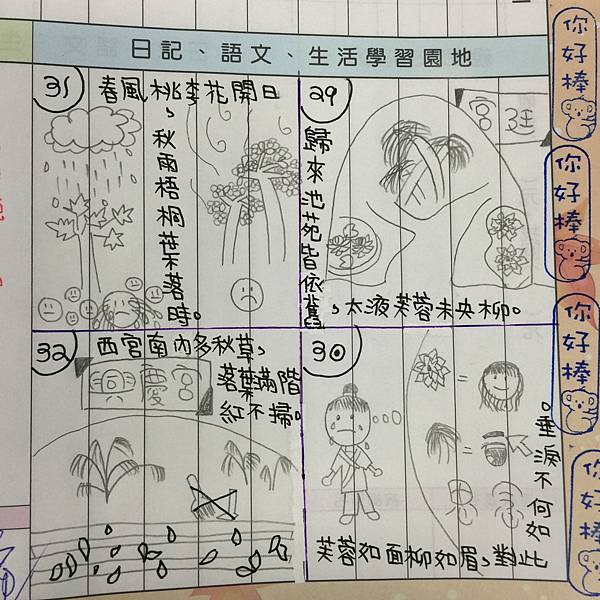 日記、語文、生活學習園地
29
宮廷
歸來池苑皆依舊
、太液芙蓉未央柳。
30
芙蓉如面柳如眉、對此
如何不淚垂。
31
春風桃李花開日
、秋雨梧桐葉落時。
32
西宮南內多秋草、
落葉滿階
紅不掃。
興慶宮
你好棒
你好棒
你好棒
你好棒